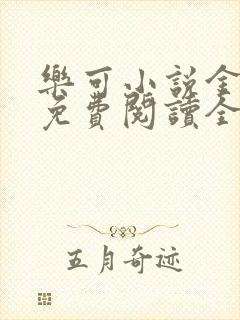 樂可小説全
免費閱讀全
五月奇迹